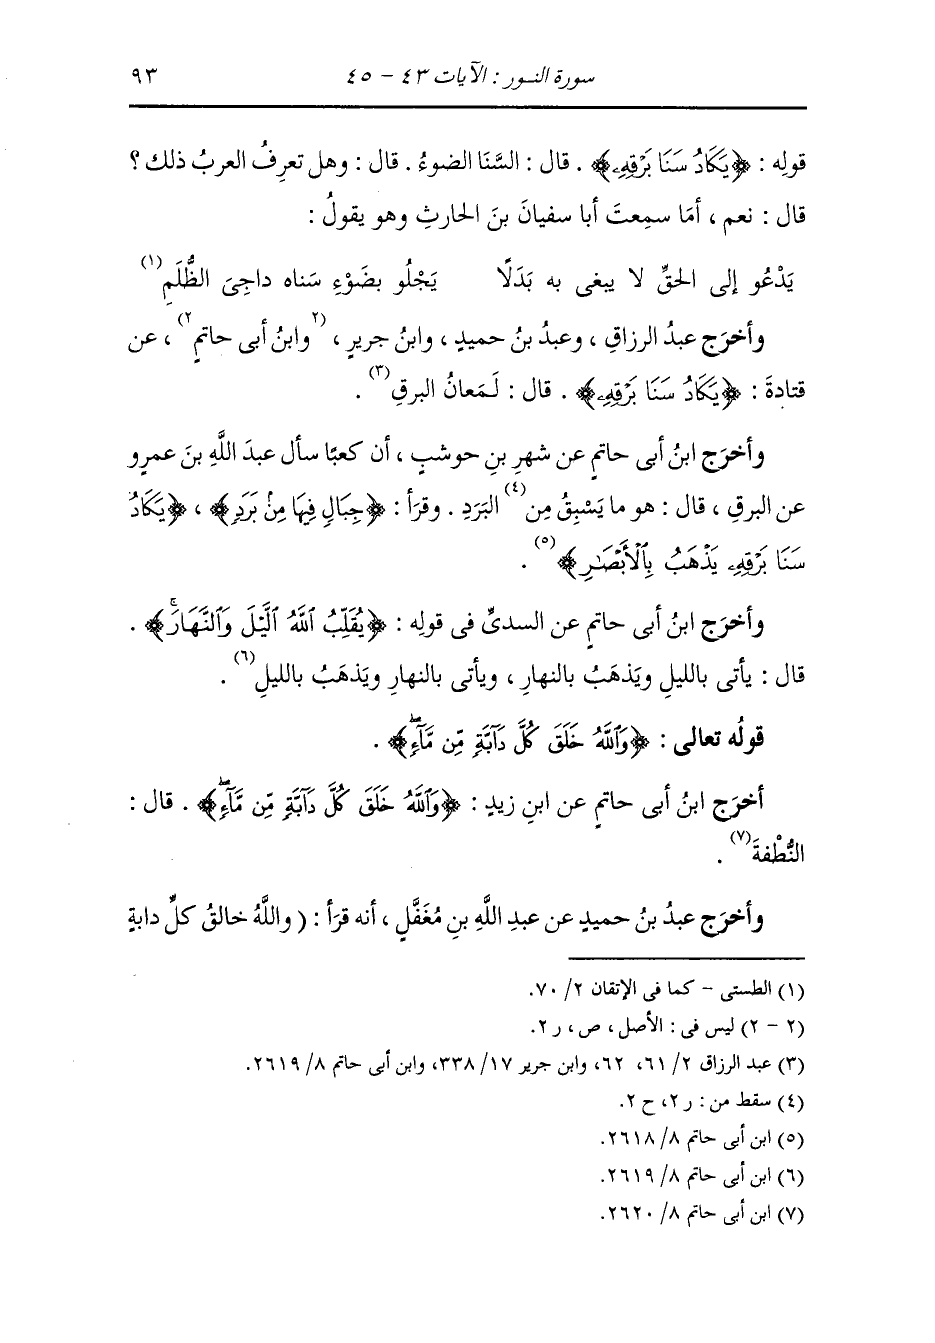 سورة النور : الآيات ٤٣ - ٤٥ ٩٣
قولِه : ﴿يَكَادُ سَنَا بَرْقِهِۦ﴾ . قال : السَّنَا الضوءُ . قال : وهل تعرِفُ العربُ ذلك ؟
قال : نعم ، أمَا سمِعتَ أبا سفيانَ بنَ الحارثِ وهو يقولُ :
يَدْعُو إلى الحقِّ لا يبغى به بَدَلًا يَجْلُو بضَوْءِ سَناه داجِىَ الظُّلَمِ(١)
وأخرَج عبدُ الرزاقِ ، وعبدُ بنُ حميدٍ ، وابنُ جريرٍ ، (٢وابنُ أبى حاتمٍ٢) ، عن
قتادةَ : ﴿يَكَادُ سَنَا بَرْقِهِۦ﴾ . قال : لَمَعانُ البرقِ(٣) .
وأخرَج ابنُ أبى حاتمٍ عن شهرِ بنِ حوشبٍ ، أن كعبًا سأل عبدَ اللَّهِ بنَ عمرٍو
عن البرقِ ، قال : هو ما يَسْبِقُ مِن(٤) البَرَدِ . وقرَأ : ﴿جِبَالٍ فِيهَا مِنۢ بَرَدٍ﴾ ، ﴿يَكَادُ
سَنَا بَرْقِهِۦ يَذْهَبُ بِٱلْأَبْصَٰرِ﴾(٥) .
وأخرَج ابنُ أبى حاتمٍ عن السدىِّ فى قولِه : ﴿يُقَلِّبُ ٱللَّهُ ٱلَّيْلَ وَٱلنَّهَارَۚ﴾ .
قال : يأتى بالليلِ ويَذهَبُ بالنهارِ ، ويأتى بالنهارِ ويَذهَبُ بالليلِ(٦) .
قولُه تعالى : ﴿وَٱللَّهُ خَلَقَ كُلَّ دَآبَّةٍ مِّن مَّآءٍۖ﴾ .
أخرَج ابنُ أبى حاتمٍ عن ابنِ زيدٍ : ﴿وَٱللَّهُ خَلَقَ كُلَّ دَآبَّةٍ مِّن مَّآءٍۖ﴾ . قال :
النُّطْفةَ(٧) .
وأخرَج عبدُ بنُ حميدٍ عن عبدِ اللَّهِ بنِ مُغَفَّلٍ ، أنه قرَأ : ( واللَّهُ خالقُ كلِّ دابةٍ
(١) الطستى - كما فى الإتقان ٢/ ٧٠.
(٢ - ٢) ليس فى : الأصل ، ص ، ر ٢.
(٣) عبد الرزاق ٢/ ٦١، ٦٢، وابن جرير ١٧/ ٣٣٨، وابن أبى حاتم ٨/ ٢٦١٩.
(٤) سقط من : ر ٢، ح ٢.
(٥) ابن أبى حاتم ٨/ ٢٦١٨.
(٦) ابن أبى حاتم ٨/ ٢٦١٩.
(٧) ابن أبى حاتم ٨/ ٢٦٢٠.